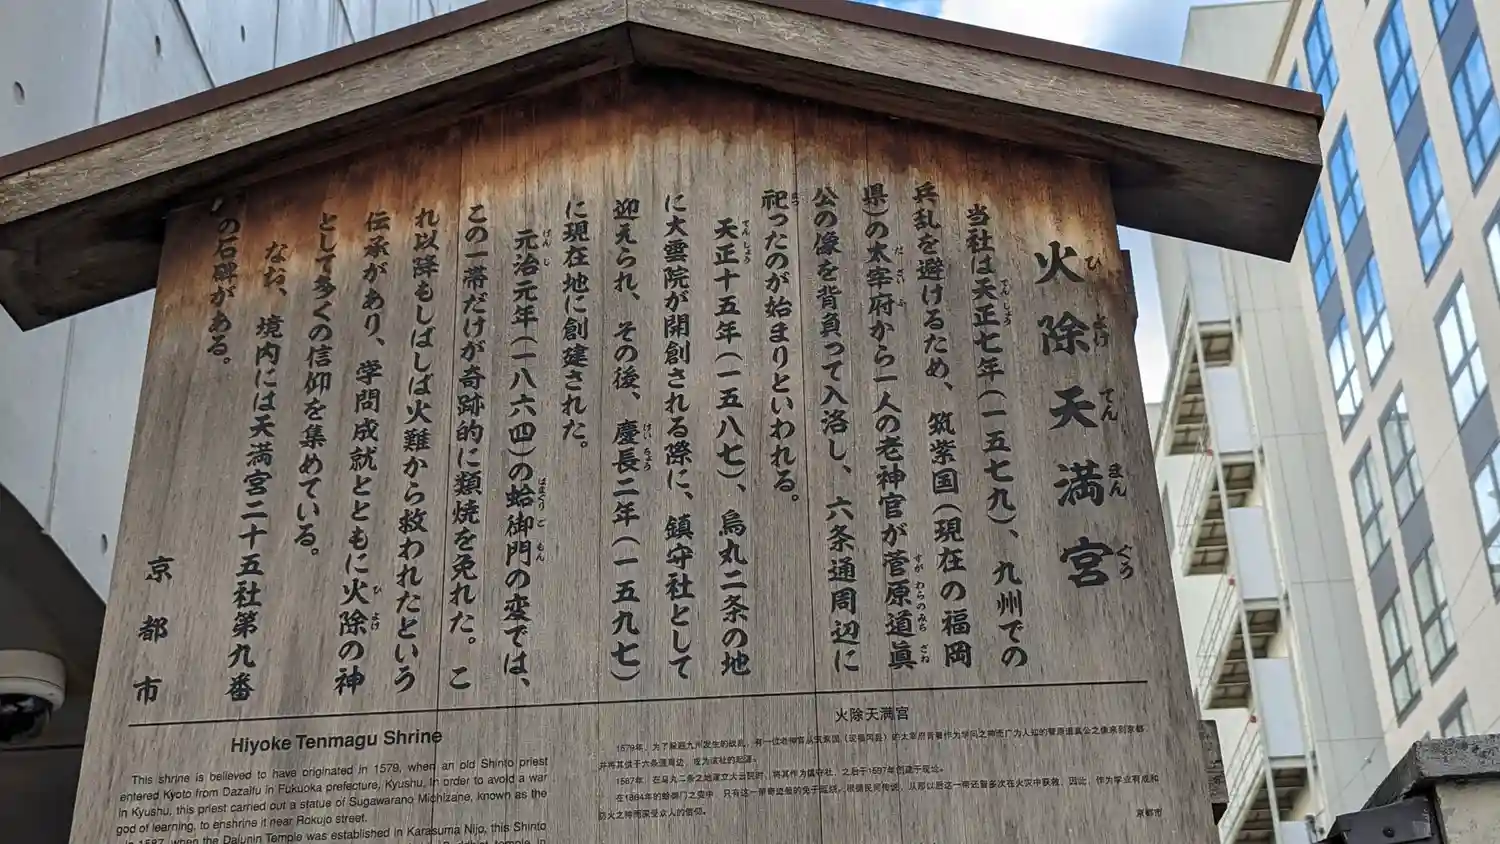 火除天満宮
ひ よけ てん まん ぐう
当社は天正七年(一五七九)、九州での
兵乱を避けるため、筑紫国(現在の福岡
県)の太宰府から一人の老神官が菅原道眞
公の像を背負って入洛し、六条通周辺に
祀ったのが始まりといわれる。
天正十五年(一五八七)、烏丸二条の地
に大雲院が開創される際に、鎮守社として
迎えられ、その後、慶長二年(一五九七)
に現在地に創建された。
元治元年(一八六四)の蛤御門の変では、
この一帯だけが奇跡的に類焼を免れた。こ
れ以降もしばしば火難から救われたという
伝承があり、学問成就とともに火除の神
として多くの信仰を集めている。
なお、境内には天満宮二十五社第九番
の石碑がある。
京都市
Hiyoke Tenmagu Shrine
This shrine is believed to have originated in 1579, when an old Shinto priest
entered Kyoto from Dazaifu in Fukuoka prefecture, Kyushu, in order to avoid a war
in Kyushu, this priest carried out a statue of Sugawarano Michizane, known as the
god of learning, to enshrine it near Rokujo street.
In 1587, when the Daiunin Temple was established in Karasuma Nijo, this Shinto
火除天满宫
1579年，为了躲避九州发生的战乱，有一位老神官从筑紫国（现福冈县）的太宰府背着作为学问之神而广为人知的菅原道真公之像来到京都，
并将其供于六条通周边，成为该社的起源。
1587年，在乌丸二条之地建立大云院时，将其作为镇守社，之后于1597年创建于现址。
在1864年的蛤御门之变中，只有这一带奇迹般的免于延烧。根据民间传说，从那以后这一带还曾多次在火灾中获救，因此，作为学业有成和
防火之神而深受众人的信仰。
京都市